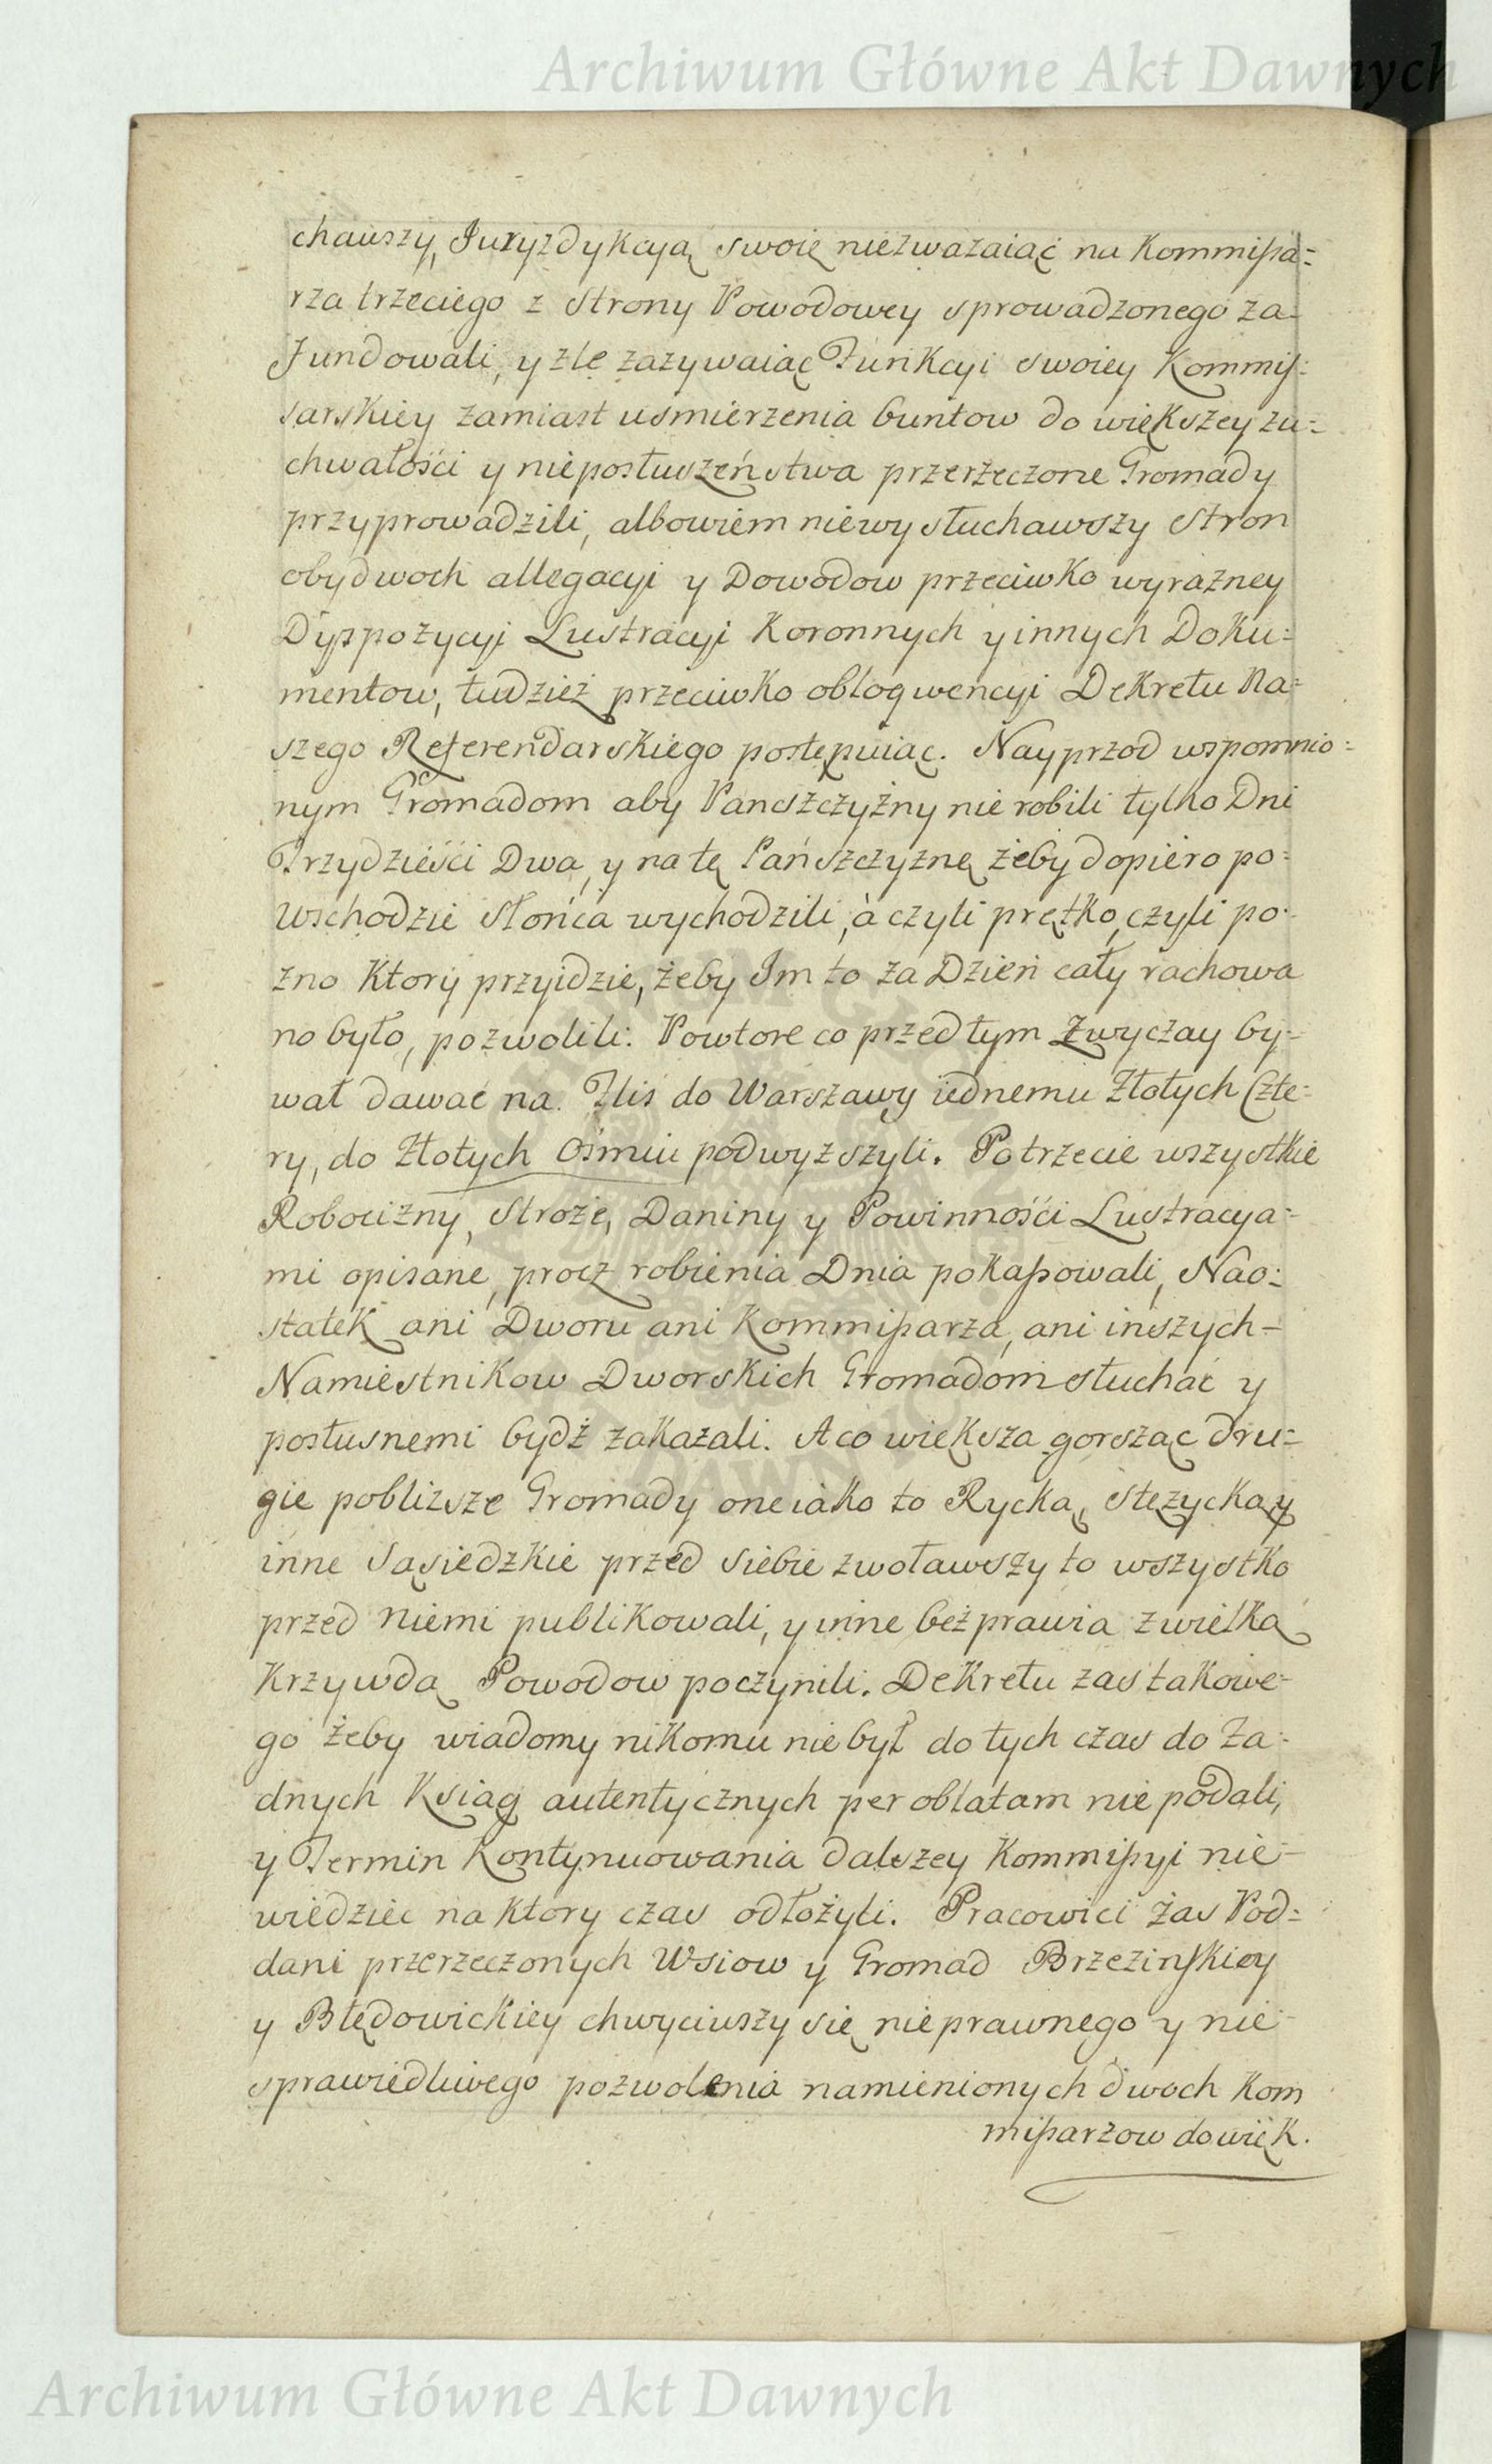 Archiwum Główne Akt Dawnych
chawszy, Juryzdykcyą swoię niezwazaiąc na Kommissa=
rza trzeciego z Strony Powodowey sprowadzonego za=
Fundowali, y zle zazywaiąc Funkcyi swoiey Kommis=
sarskiey zamiast uśmierzenia buntow do większey zu=
chwałości y nieposłuszeństwa przerzeczone Gromady
przyprowadzili, albowiem niewysłuchawszy Stron
obydwoch allegacyi y Dowodow przeciwko wyrazney
Dyspozycyi Lustracyi Koronnych y innych Doku=
mentow, tudzież przeciwko obloqwencyi Dekretu Na=
szego Referendarskiego postępuiąc. Nayprzod wspomnio=
nym Gromadom aby Panszczyżny nie robili tylko Dni
Trzydzieści Dwa, y na tę Pańszczyznę żeby dopiero po=
wschodzie Słońca wychodzili, à czyli prętko, czyli po=
zno Ktory przyidzie, żeby Im to za Dzień cały rachowa
no było, pozwolili: Powtore co przed tym Zwyczay by=
wał dawać na Flis do Warszawy iednemu Złotych Czte=
ry, do Złotych Ośmiu podwyzszyli. Potrzecie wszystkie
Robocizny, Stroże, Daniny y Powinnośći Lustracya=
mi opisane, procz robienia Dnia pokassowali, Nao=
statek ani Dworu ani Kommissarza, ani inszych-
Namiestnikow Dworskich Gromadom słuchać y
posłusnemi bydź zakazali. A co większa gorsząc dru=
gie pobliższe Gromady one iako to Rycką, Stęzycką y
inne Sąsiedzkie przed siebie zwoławszy to wszystko
przed niemi publikowali, y inne bezprawia z wielką
Krzywdą Powodow poczynili. Dekretu zas takowe=
go żeby wiadomy nikomu nie był do tych czas do Za=
dnych Ksiąg autentycznych per oblatam nie podali,
y Termin Kontynuowania dalszey Kommissyi nie=
wiedziec na Ktory czas odłożyli. Pracowici Zas Pod=
dani przerzeczonych Wsiow y Gromad Brzezinskiey
y Błędowickiey chwyciwszy się nieprawnego y nie=
sprawiedliwego pozwolenia namienionych dwoch Kom
missarzow do więk.
Archiwum Główne Akt Dawnych